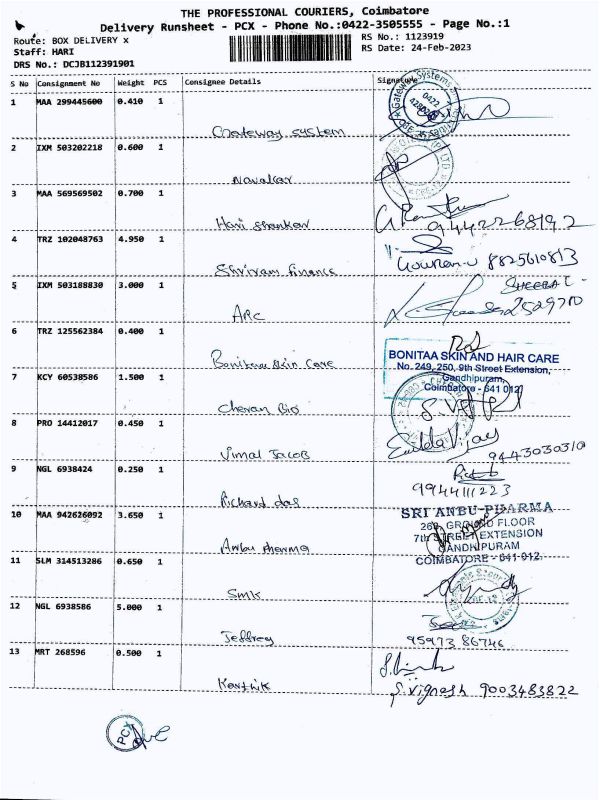 THE PROFESSIONAL COURIERS, Coimbatore
Delivery Runsheet - PCX - Phone No.:0422-3505555 - Page No.:1
Route: BOX DELIVERY x
RS No.: 1123919
Staff: HARI
RS Date: 24-Feb-2023
DRS No.: DCJB112391901
S No Consignment No Weight PCS Consignee Details Signature
1 MAA 299445600 0.410 1
Gateway System
2 IXM 503202218 0.600 1
Navakar
3 MAA 569569502 0.700 1
Hari Shankar
9442268192
4 TRZ 102048763 4.950 1
Shriram Finance 8825610813
5 IXM 503188830 3.000 1
SHEEBA C
ARC 2529710
6 TRZ 125562384 0.400 1
Bonitaa Skin Care
BONITAA SKIN AND HAIR CARE
No. 249, 250, 9th Street Extension,
Gandhipuram,
Coimbatore - 641 012
7 KCY 60538586 1.500 1
Cheran Bio
8 PRO 14412017 0.450 1
Vimal Jacob
9443030310
9 NGL 6938424 0.250 1
Richard das
9944111223
10 MAA 942626092 3.650 1
Anbu Pharma
SRI ANBU-PHARMA
GROUND FLOOR
7th STREET EXTENSION
GANDHIPURAM
COIMBATORE - 641 012.
11 SLM 314513286 0.650 1
SMK
12 NGL 6938586 5.000 1
Jeffrey
95973 86746
13 MRT 268596 0.500 1
Karthik
S. Vignesh 9003483822
PCX